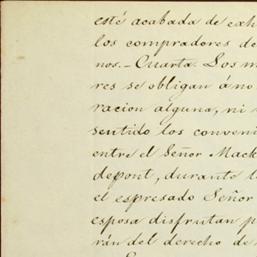 esté acabada de exh
los compradores de
nos.- Cuarta. Los m
res se obligan á no
racion alguna, ni
sentido los conveni
entre el Señor Mack
depont, durante l
el espresado Señor
esposa disfrutan p
rán del derecho de